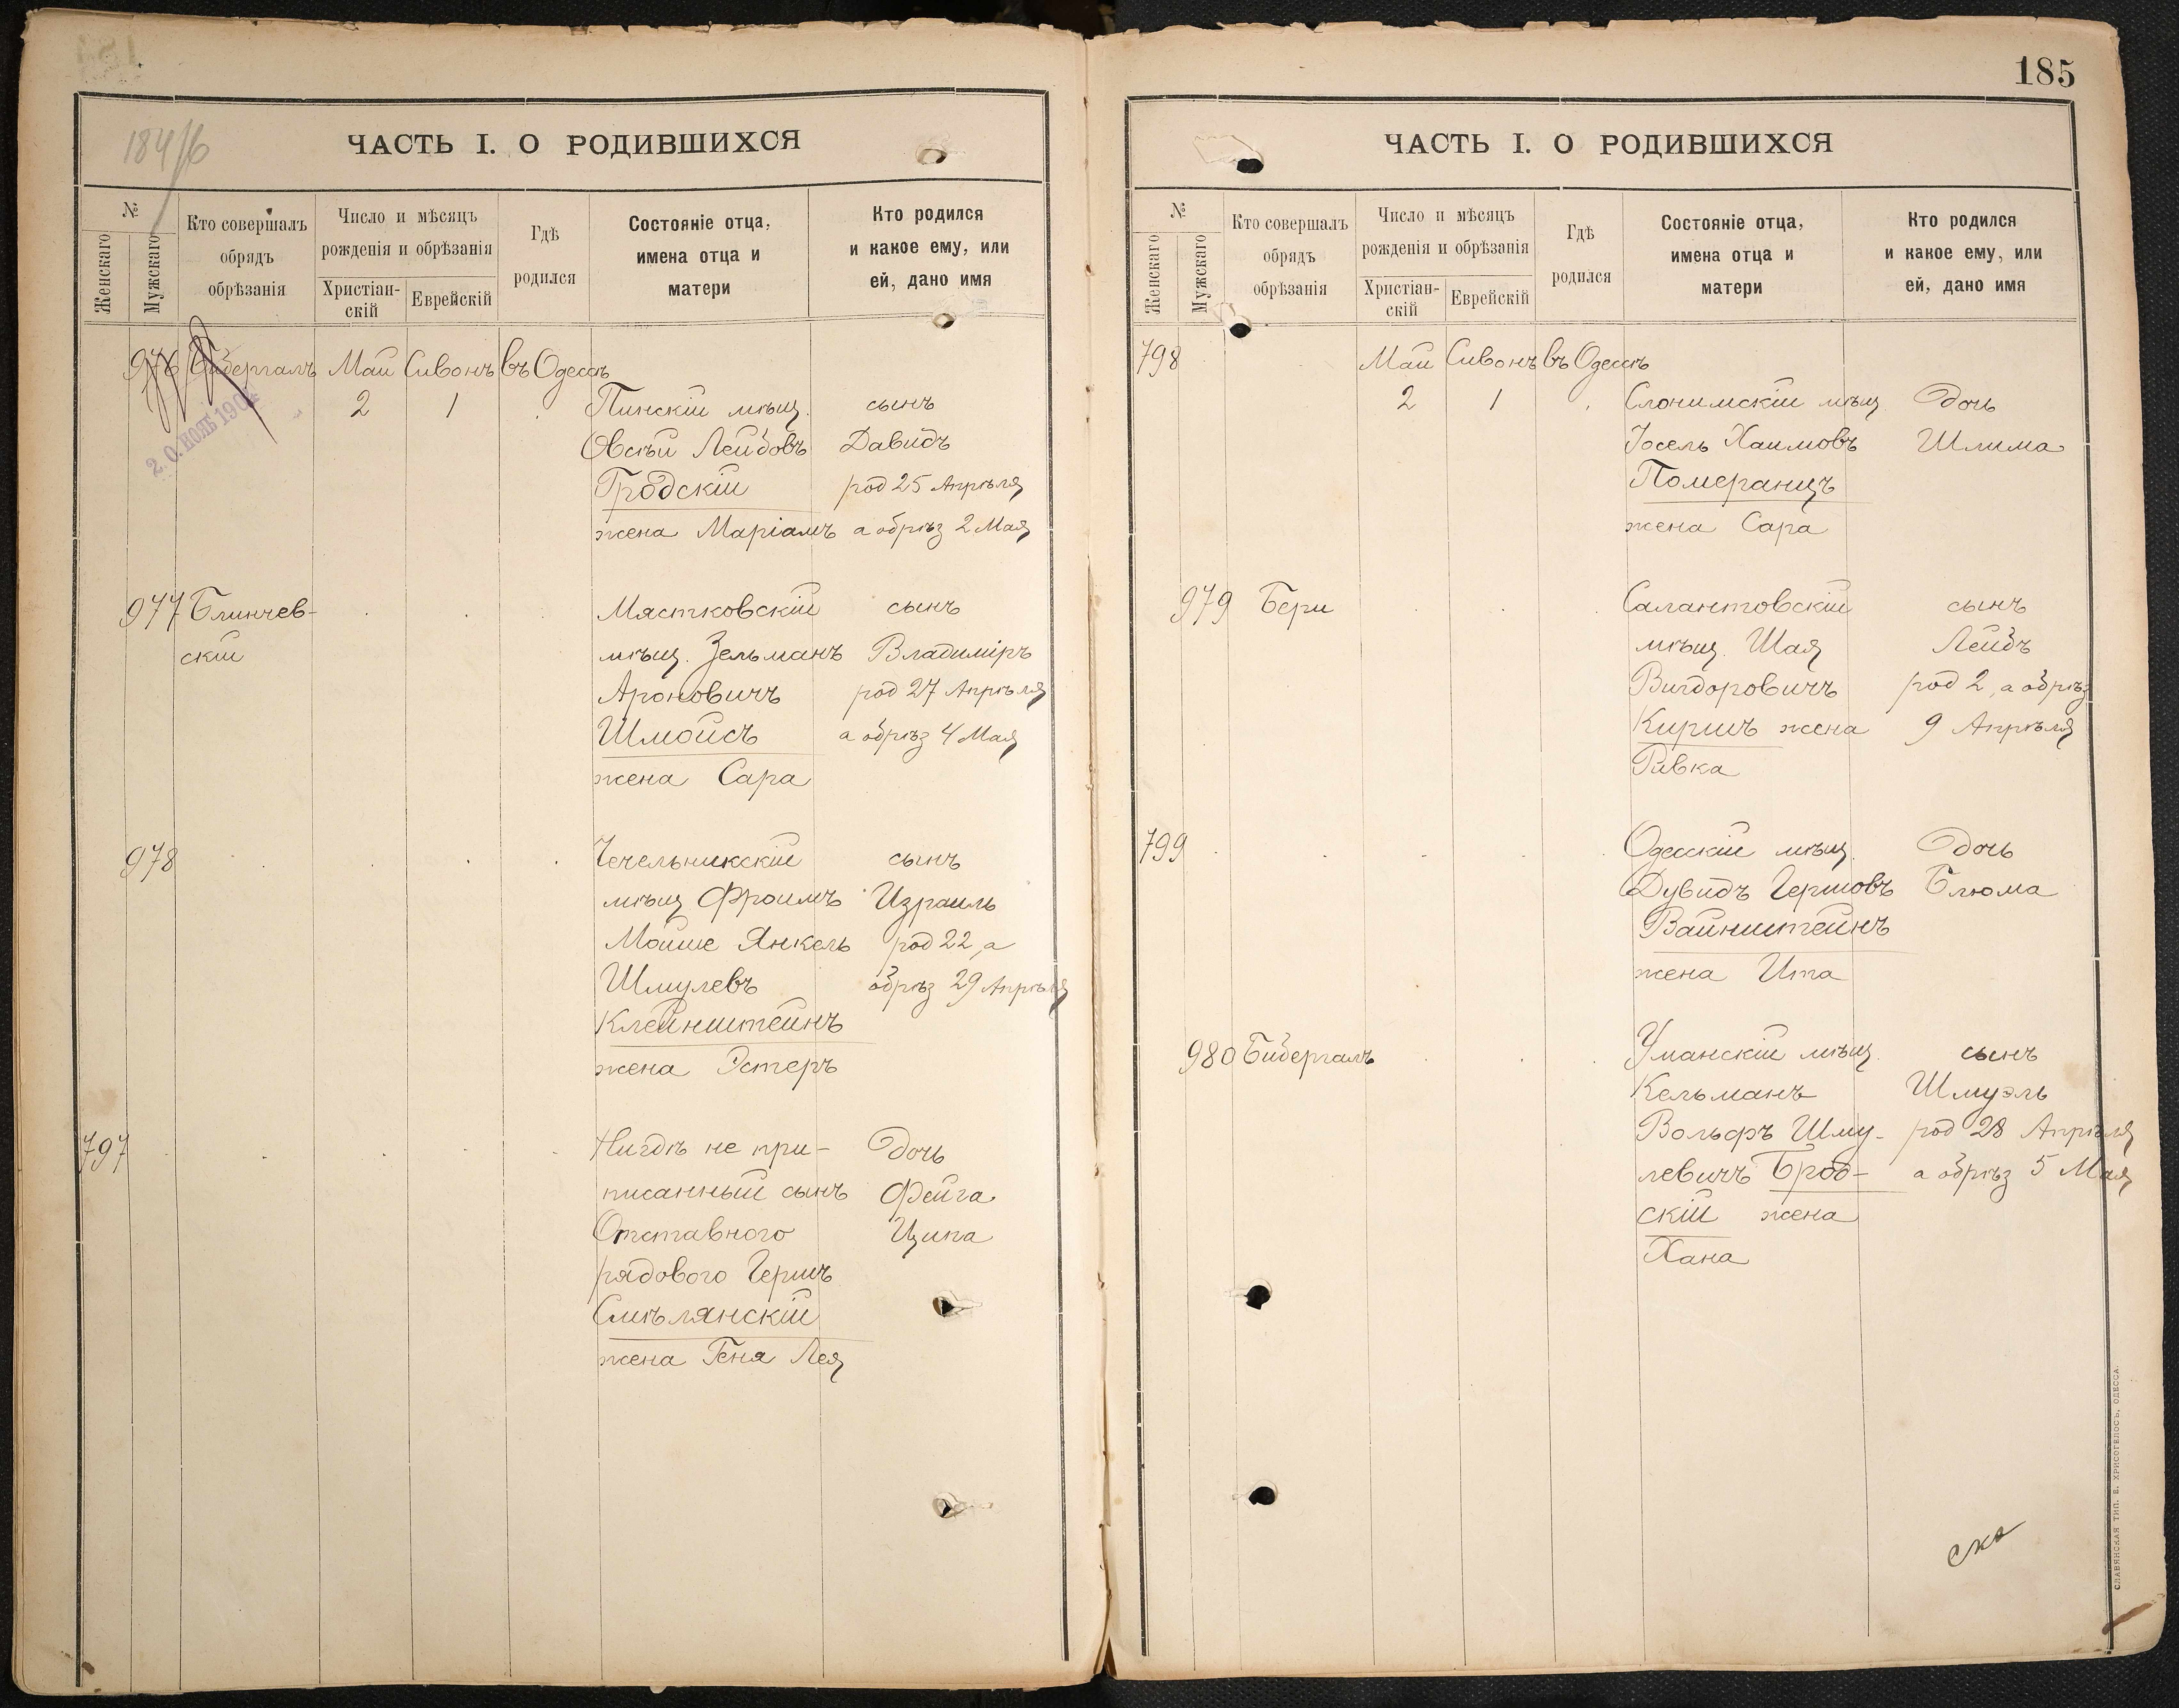 184/б
ЧАСТЬ I. О РОДИВШИХСЯ
№
Женскаго
Мужскаго
Кто совершалъ
обрядъ
обрѣзанія
Число и мѣсяцъ
рожденія и обрѣзанія
Христіан-
скій
Еврейскій
Гдѣ
родился
Состояніе отца,
имена отца и
матери
Кто родился
и какое ему, или
ей, дано имя
976 Бибергалъ Май Сивонъ въ Одессѣ
2 1
2.0. НОЯБ 190
Пинскій мѣщ. сынъ
Овсѣй Лейбовъ Давидъ
Гродскій род 25 Апрѣля
жена Маріамъ а обрѣз 2 Мая
977 Блинчев- Мястковскій сынъ
скій мѣщ. Зельманъ Владиміръ
Ароновичъ род 27 Апрѣля
Шмойсъ а обрѣз 4 Мая
жена Сара
978 Чечельникскій сынъ
мѣщ Фроимъ Израиль
Мойше Янкель род 22, а
Шмулевъ обрѣз 29 Апрѣля
Клейнштейнъ
жена Эстеръ
797 Нигдѣ не при- Дочь
писанный сынъ Фейга
Отставного Ципа
рядового Гершъ
Смѣлянскій
жена Геня Лея
185
ЧАСТЬ I. О РОДИВШИХСЯ
№
Женскаго
Мужскаго
Кто совершалъ
обрядъ
обрѣзанія
Число и мѣсяцъ
рожденія и обрѣзанія
Христіан-
скій
Еврейскій
Гдѣ
родился
Состояніе отца,
имена отца и
матери
Кто родился
и какое ему, или
ей, дано имя
798 Май Сивонъ въ Одессѣ
2 1 Слонимскій мѣщ Дочь
Іосель Хаимовъ Шлима
Померанцъ
жена Сара
979 Бери Салантовскій сынъ
мѣщ. Шая Лейбъ
Вигдоровичъ род 2, а обрѣз
Киршъ жена 9 Апрѣля
Ривка
799 Одесскій мѣщ. Дочь
Дувидъ Гершовъ Блюма
Вайнштейнъ
жена Ита
980 Бибергалъ Уманскій мѣщ. сынъ
Кельманъ Шмуэль
Вольфъ Шму- род 28 Апрѣля
левичъ Брод- а обрѣз 5 Мая
скій жена
Хана
СЛАВЯНСКАЯ ТИП. Е. ХРИСОГЕЛОСЪ, ОДЕССА.